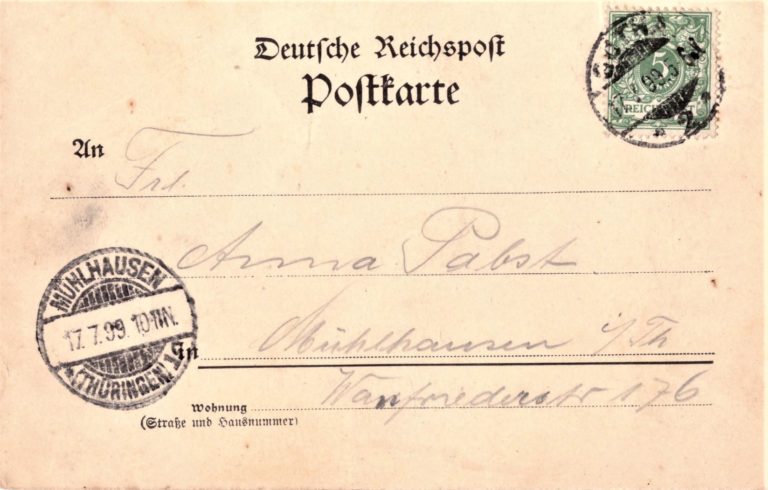 Deutsche Reichspost
Postkarte
5
REICHSPOST
An Frl.
Anna Pabst
MÜHLHAUSEN
17.7.99. 10-11N.
(THÜRINGEN) 1
In Mühlhausen i/Th
Wanfriederstr 176
Wohnung
(Straße und Hausnummer)